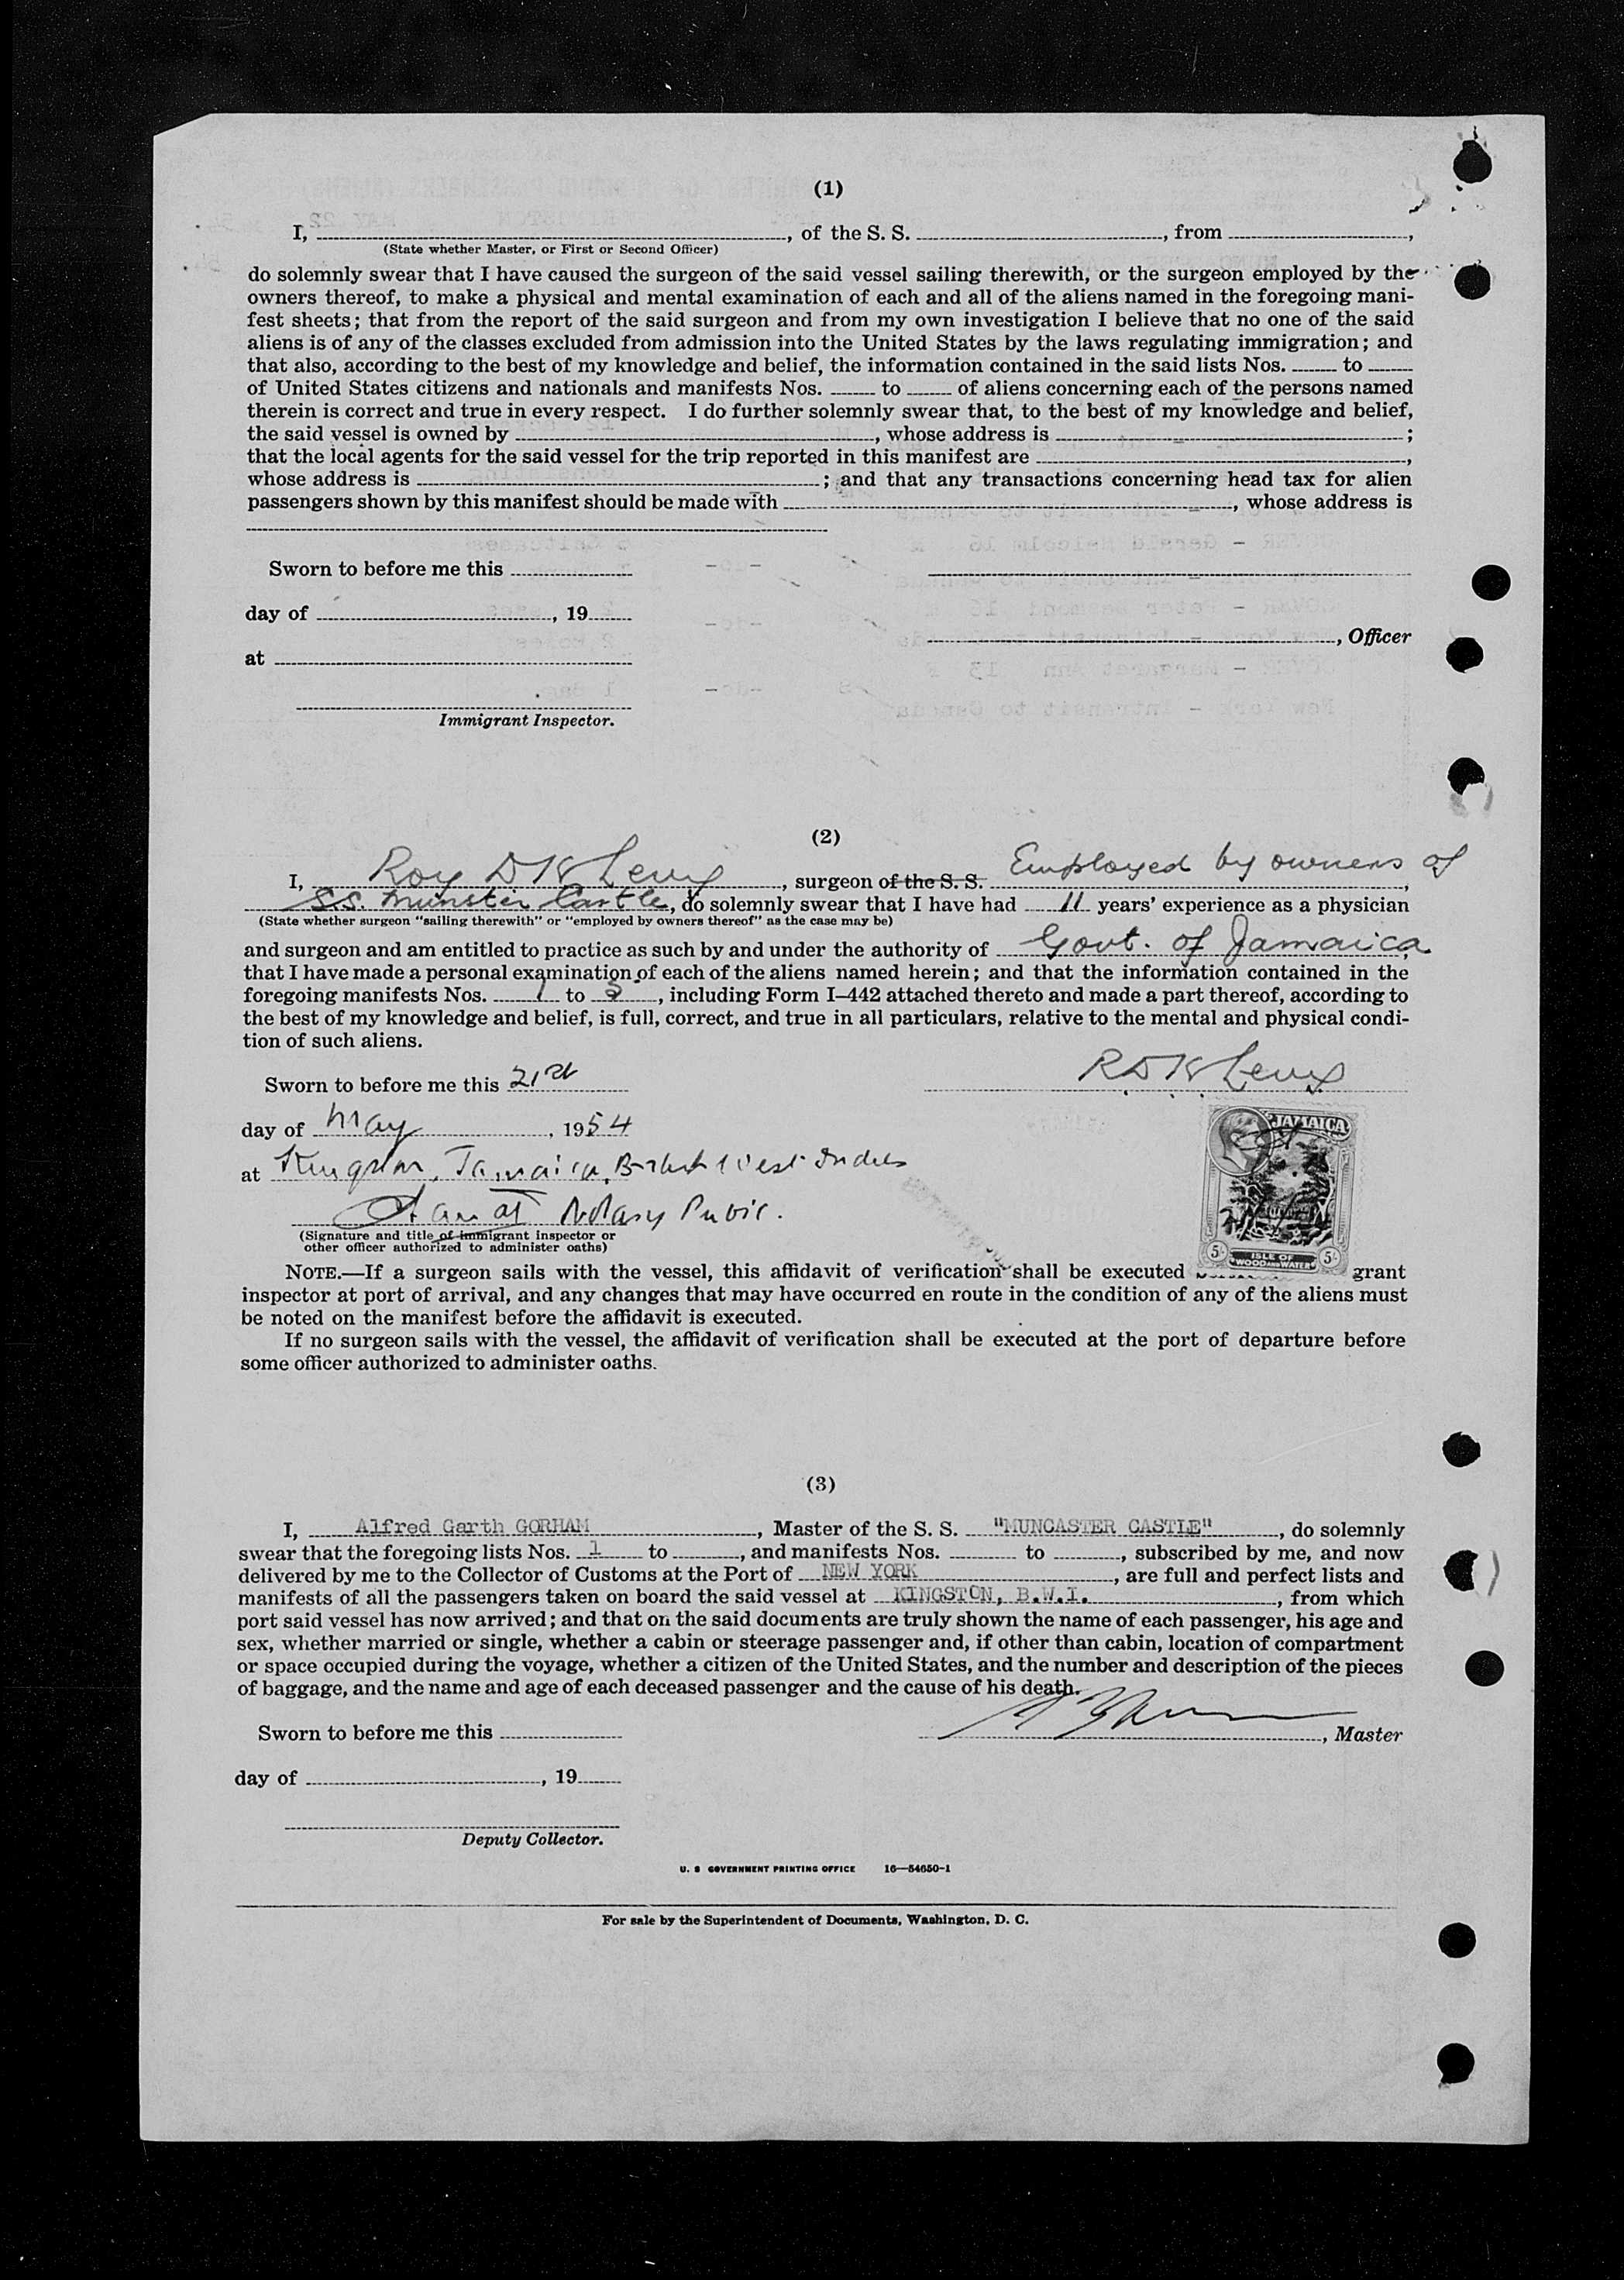 (1)
I, , of the S. S. , from ,
(State whether Master, or First or Second Officer)
do solemnly swear that I have caused the surgeon of the said vessel sailing therewith, or the surgeon employed by the
owners thereof, to make a physical and mental examination of each and all of the aliens named in the foregoing mani-
fest sheets; that from the report of the said surgeon and from my own investigation I believe that no one of the said
aliens is of any of the classes excluded from admission into the United States by the laws regulating immigration; and
that also, according to the best of my knowledge and belief, the information contained in the said lists Nos. to
of United States citizens and nationals and manifests Nos. to of aliens concerning each of the persons named
therein is correct and true in every respect. I do further solemnly swear that, to the best of my knowledge and belief,
the said vessel is owned by , whose address is ;
that the local agents for the said vessel for the trip reported in this manifest are ,
whose address is ; and that any transactions concerning head tax for alien
passengers shown by this manifest should be made with , whose address is
Sworn to before me this
day of , 19
, Officer
at
Immigrant Inspector.
(2)
I, Roy D K Levy, surgeon of the S. S. Employed by owners of,
SS. Munster Castle, do solemnly swear that I have had 11 years' experience as a physician
(State whether surgeon "sailing therewith" or "employed by owners thereof" as the case may be)
and surgeon and am entitled to practice as such by and under the authority of Govt. of Jamaica,
that I have made a personal examination of each of the aliens named herein; and that the information contained in the
foregoing manifests Nos. 1 to , including Form I-442 attached thereto and made a part thereof, according to
the best of my knowledge and belief, is full, correct, and true in all particulars, relative to the mental and physical condi-
tion of such aliens.
R D K Levy
Sworn to before me this 21st
day of May, 1954
JAMAICA
at Kingston, Jamaica, British West Indies
Notary Public.
(Signature and title of immigrant inspector or
other officer authorized to administer oaths)
5/- ISLE OF WOOD AND WATER 5/-
NOTE.—If a surgeon sails with the vessel, this affidavit of verification shall be executed grant
inspector at port of arrival, and any changes that may have occurred en route in the condition of any of the aliens must
be noted on the manifest before the affidavit is executed.
If no surgeon sails with the vessel, the affidavit of verification shall be executed at the port of departure before
some officer authorized to administer oaths.
(3)
I, Alfred Garth GORHAM, Master of the S. S. "MUNCASTER CASTLE", do solemnly
swear that the foregoing lists Nos. 1 to , and manifests Nos. to , subscribed by me, and now
delivered by me to the Collector of Customs at the Port of NEW YORK, are full and perfect lists and
manifests of all the passengers taken on board the said vessel at KINGSTON, B.W.I., from which
port said vessel has now arrived; and that on the said documents are truly shown the name of each passenger, his age and
sex, whether married or single, whether a cabin or steerage passenger and, if other than cabin, location of compartment
or space occupied during the voyage, whether a citizen of the United States, and the number and description of the pieces
of baggage, and the name and age of each deceased passenger and the cause of his death.
Sworn to before me this
, Master
day of , 19
Deputy Collector.
U. S GOVERNMENT PRINTING OFFICE 16—54650-1
For sale by the Superintendent of Documents, Washington, D. C.